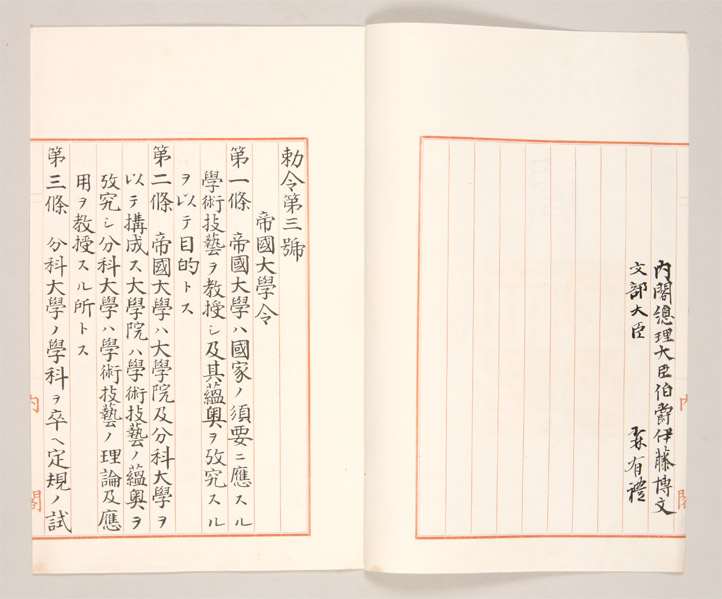 内閣
内閣總理大臣伯爵伊藤博文
文部大臣 森有禮
勅令第三號
帝國大學令
第一條 帝國大學ハ國家ノ須要ニ應スル
學術技藝ヲ教授シ及其蘊奥ヲ攷究スル
ヲ以テ目的トス
第二條 帝國大學ハ大學院及分科大學ヲ
以テ構成ス大學院ハ學術技藝ノ蘊奥ヲ
攷究シ分科大學ハ學術技藝ノ理論及應
用ヲ教授スル所トス
第三條 分科大學ノ學科ヲ卒ヘ定規ノ試
内閣